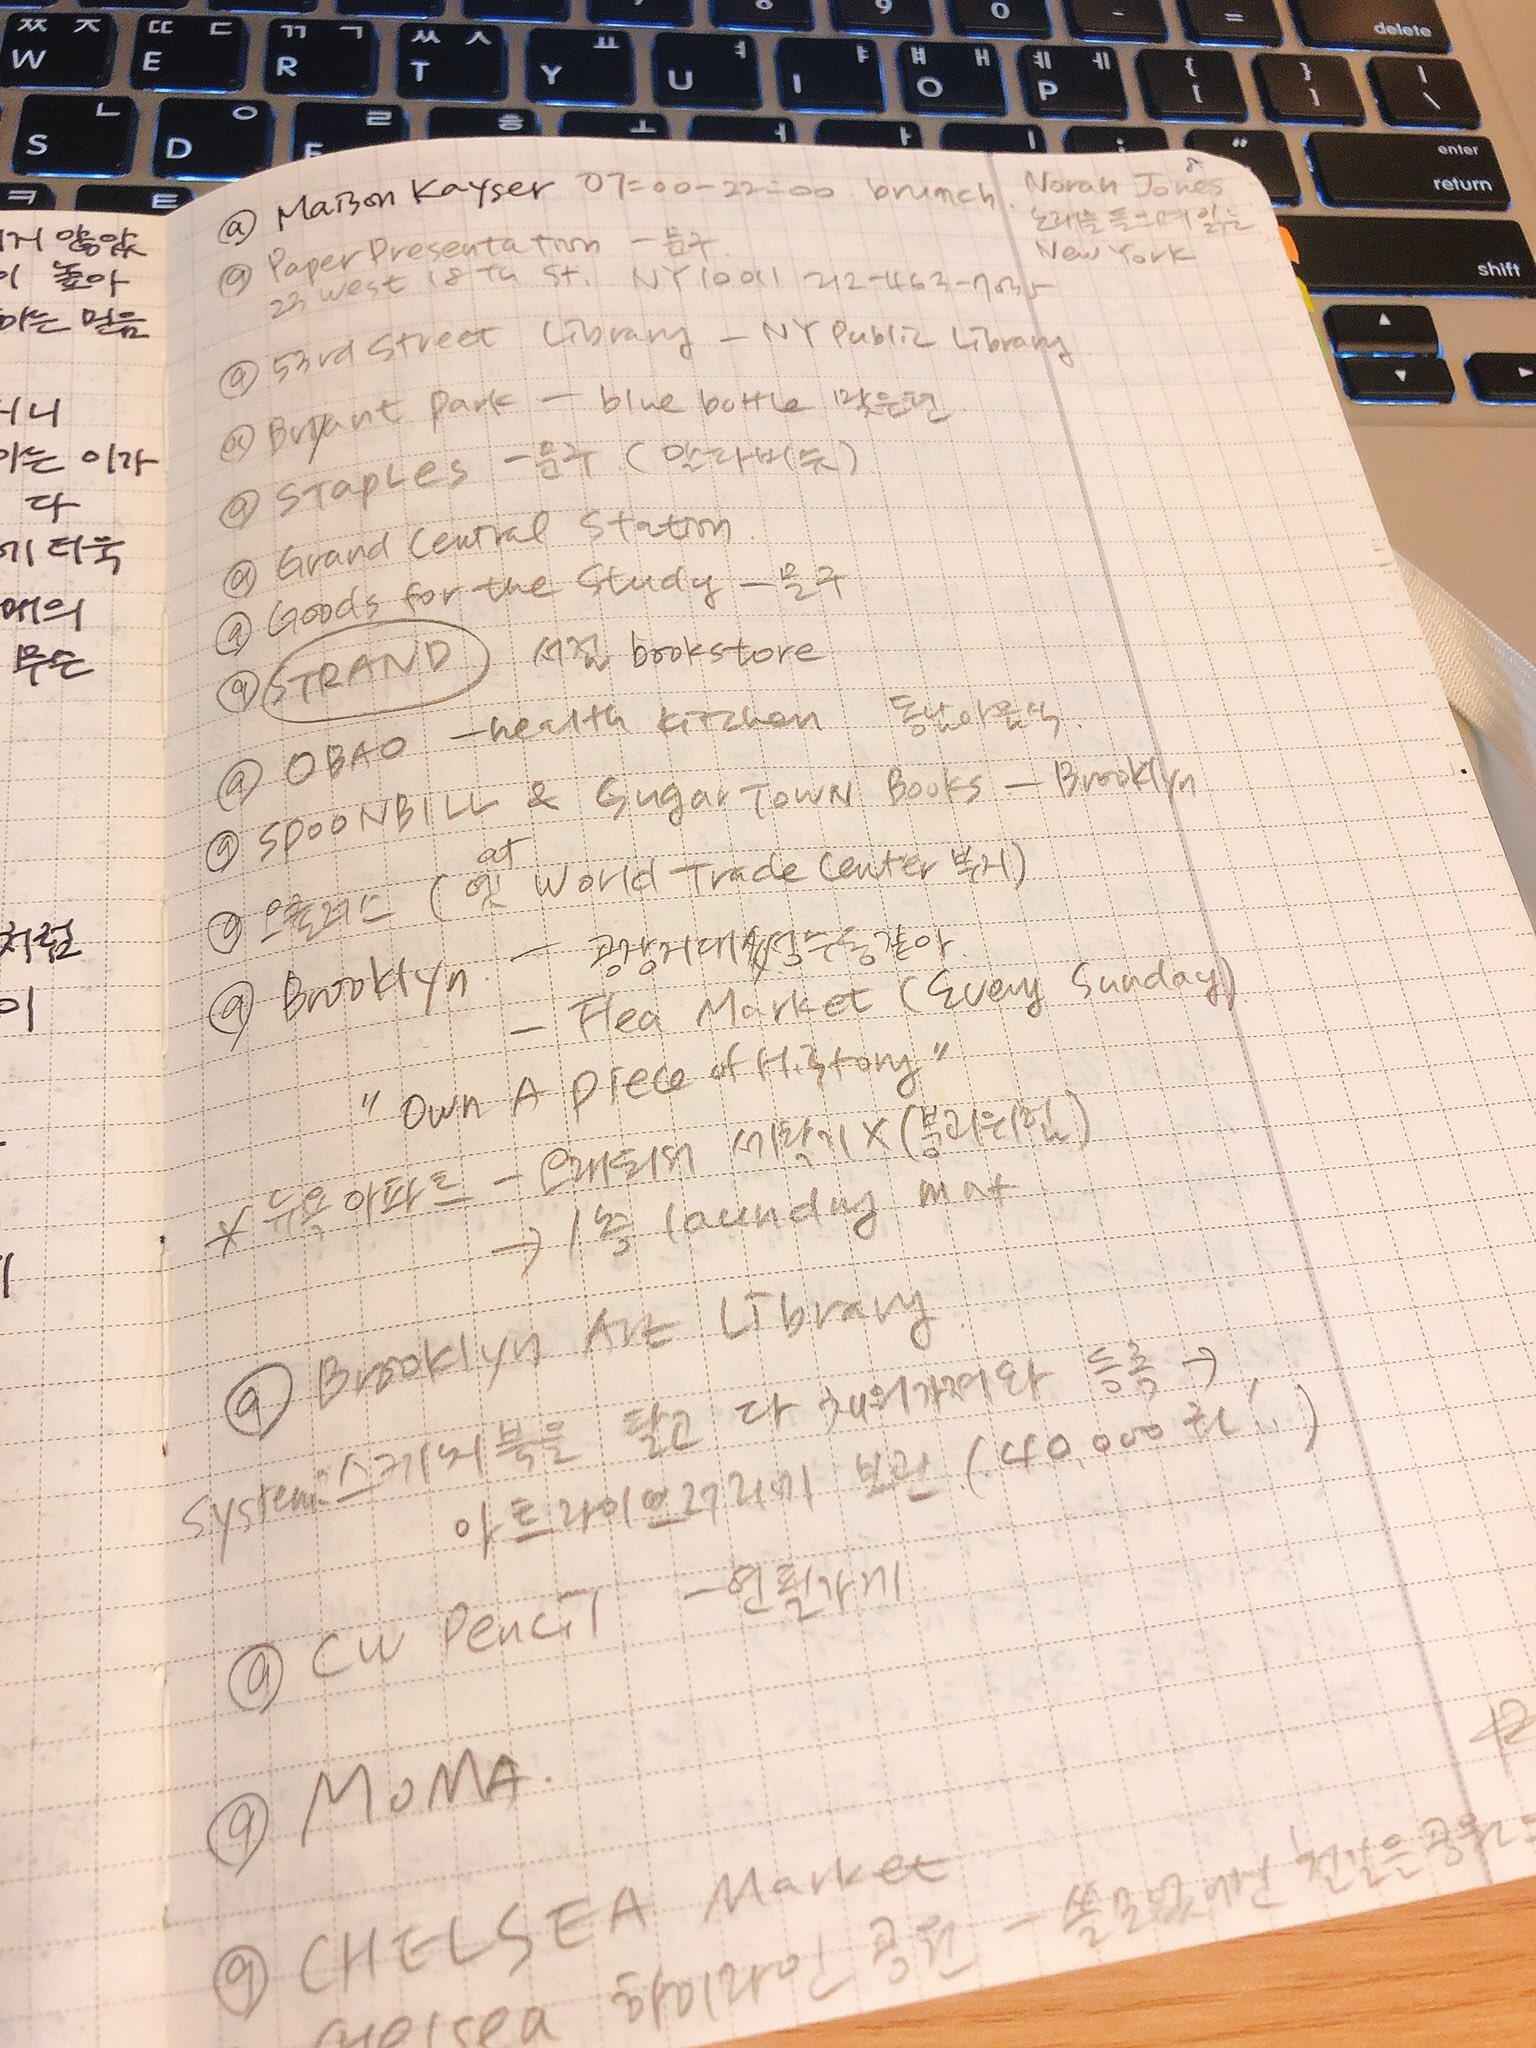 8
9
0
-
=
delete
ㅉ ㅈ
W
ㄸ ㄷ
E
ㄲ ㄱ
R
ㅆ ㅅ
T
ㅛ
Y
ㅕ
U
ㅑ
I
ㅒ ㅐ
O
ㅖ ㅔ
P
{
[
}
]
|
\
ㄴ
S
ㅇ
D
ㄹ
F
ㅎ
ㅗ
ㅓ
ㅏ
ㅣ
:
;
"
enter
return
ㅋ
ㅌ
shift
않았
이 높아
하는 믿음
거니
이는 이가
다
에 더욱
매의
무는
처럼
이
ⓐ Maison Kayser 07:00-22:00 brunch.
Norah Jones
노래를 들으며 읽는
New York
ⓐ Paper Presentation - 문구.
23 West 18th St. NY 10011 212-463-7035
ⓐ 53rd Street Library - NY Public Library
ⓐ Bryant Park - blue bottle 맞은편
ⓐ Staples - 문구 (알라버듯)
ⓐ Grand Central Station.
ⓐ Goods for the Study - 문구
ⓐ STRAND 서점 bookstore
ⓐ OBAO - health kitchen 동남아음식.
ⓐ SPOONBILL & Sugar Town Books - Brooklyn
ⓐ 오큘러스 (옛 at World Trade Center 부지)
ⓐ Brooklyn. - 공장지대 성수동같아.
- Flea Market (Every Sunday)
"Own A Piece of History"
* 뉴욕 아파트 - 오래되어 세탁기 X (붕괴위험)
→ 1층 laundry mat
ⓐ Brooklyn Art Library.
System: 스케치북을 탈고 다 채워가져와 등록 →
아트라이브러리에 보관. (40,000권!!)
ⓐ CW Pencil - 연필가게
ⓐ MoMA.
ⓐ CHELSEA Market
Chelsea 하이라인 공원 - 쓸모없어진 철길은 공원으